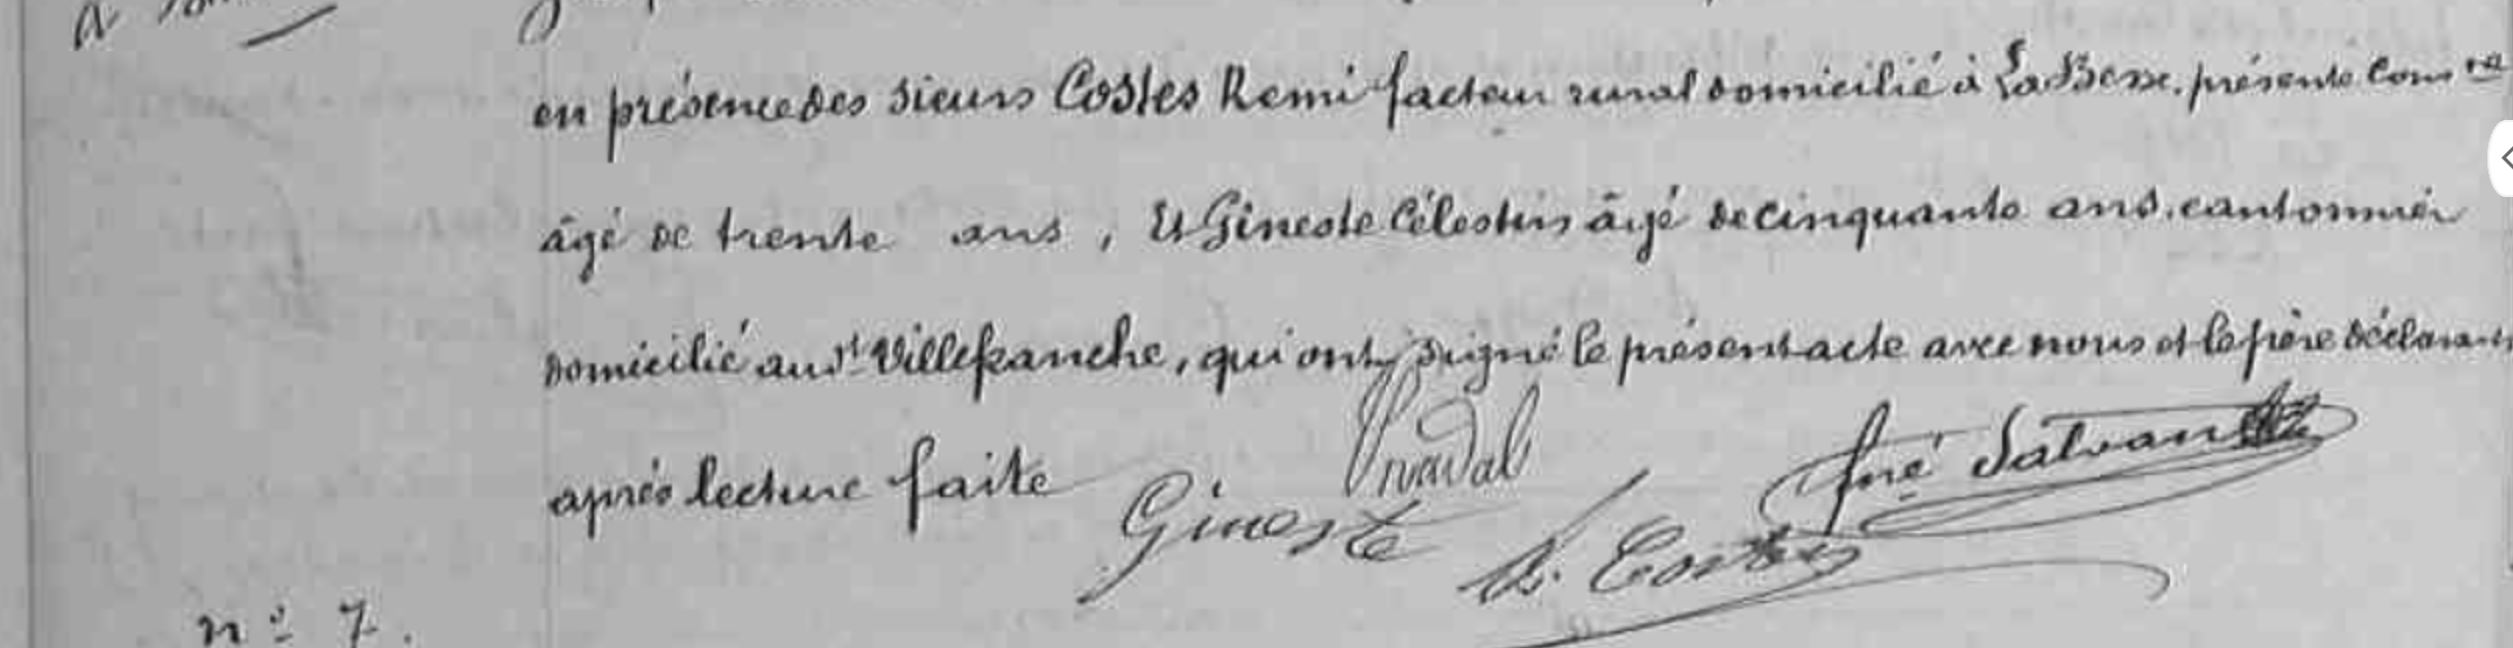 en présence des sieurs Costes Remi facteur rural domicilié à La Besse, présente Com ne
âgé de trente ans, Et Gineste Célestin âgé de cinquante ans, cantonnier
domicilié aud.t Villefranche, qui ont signé le présent acte avec nous et le père déclarant
après lecture faite
Gineste
Nadal
R. Costes
n° 7.